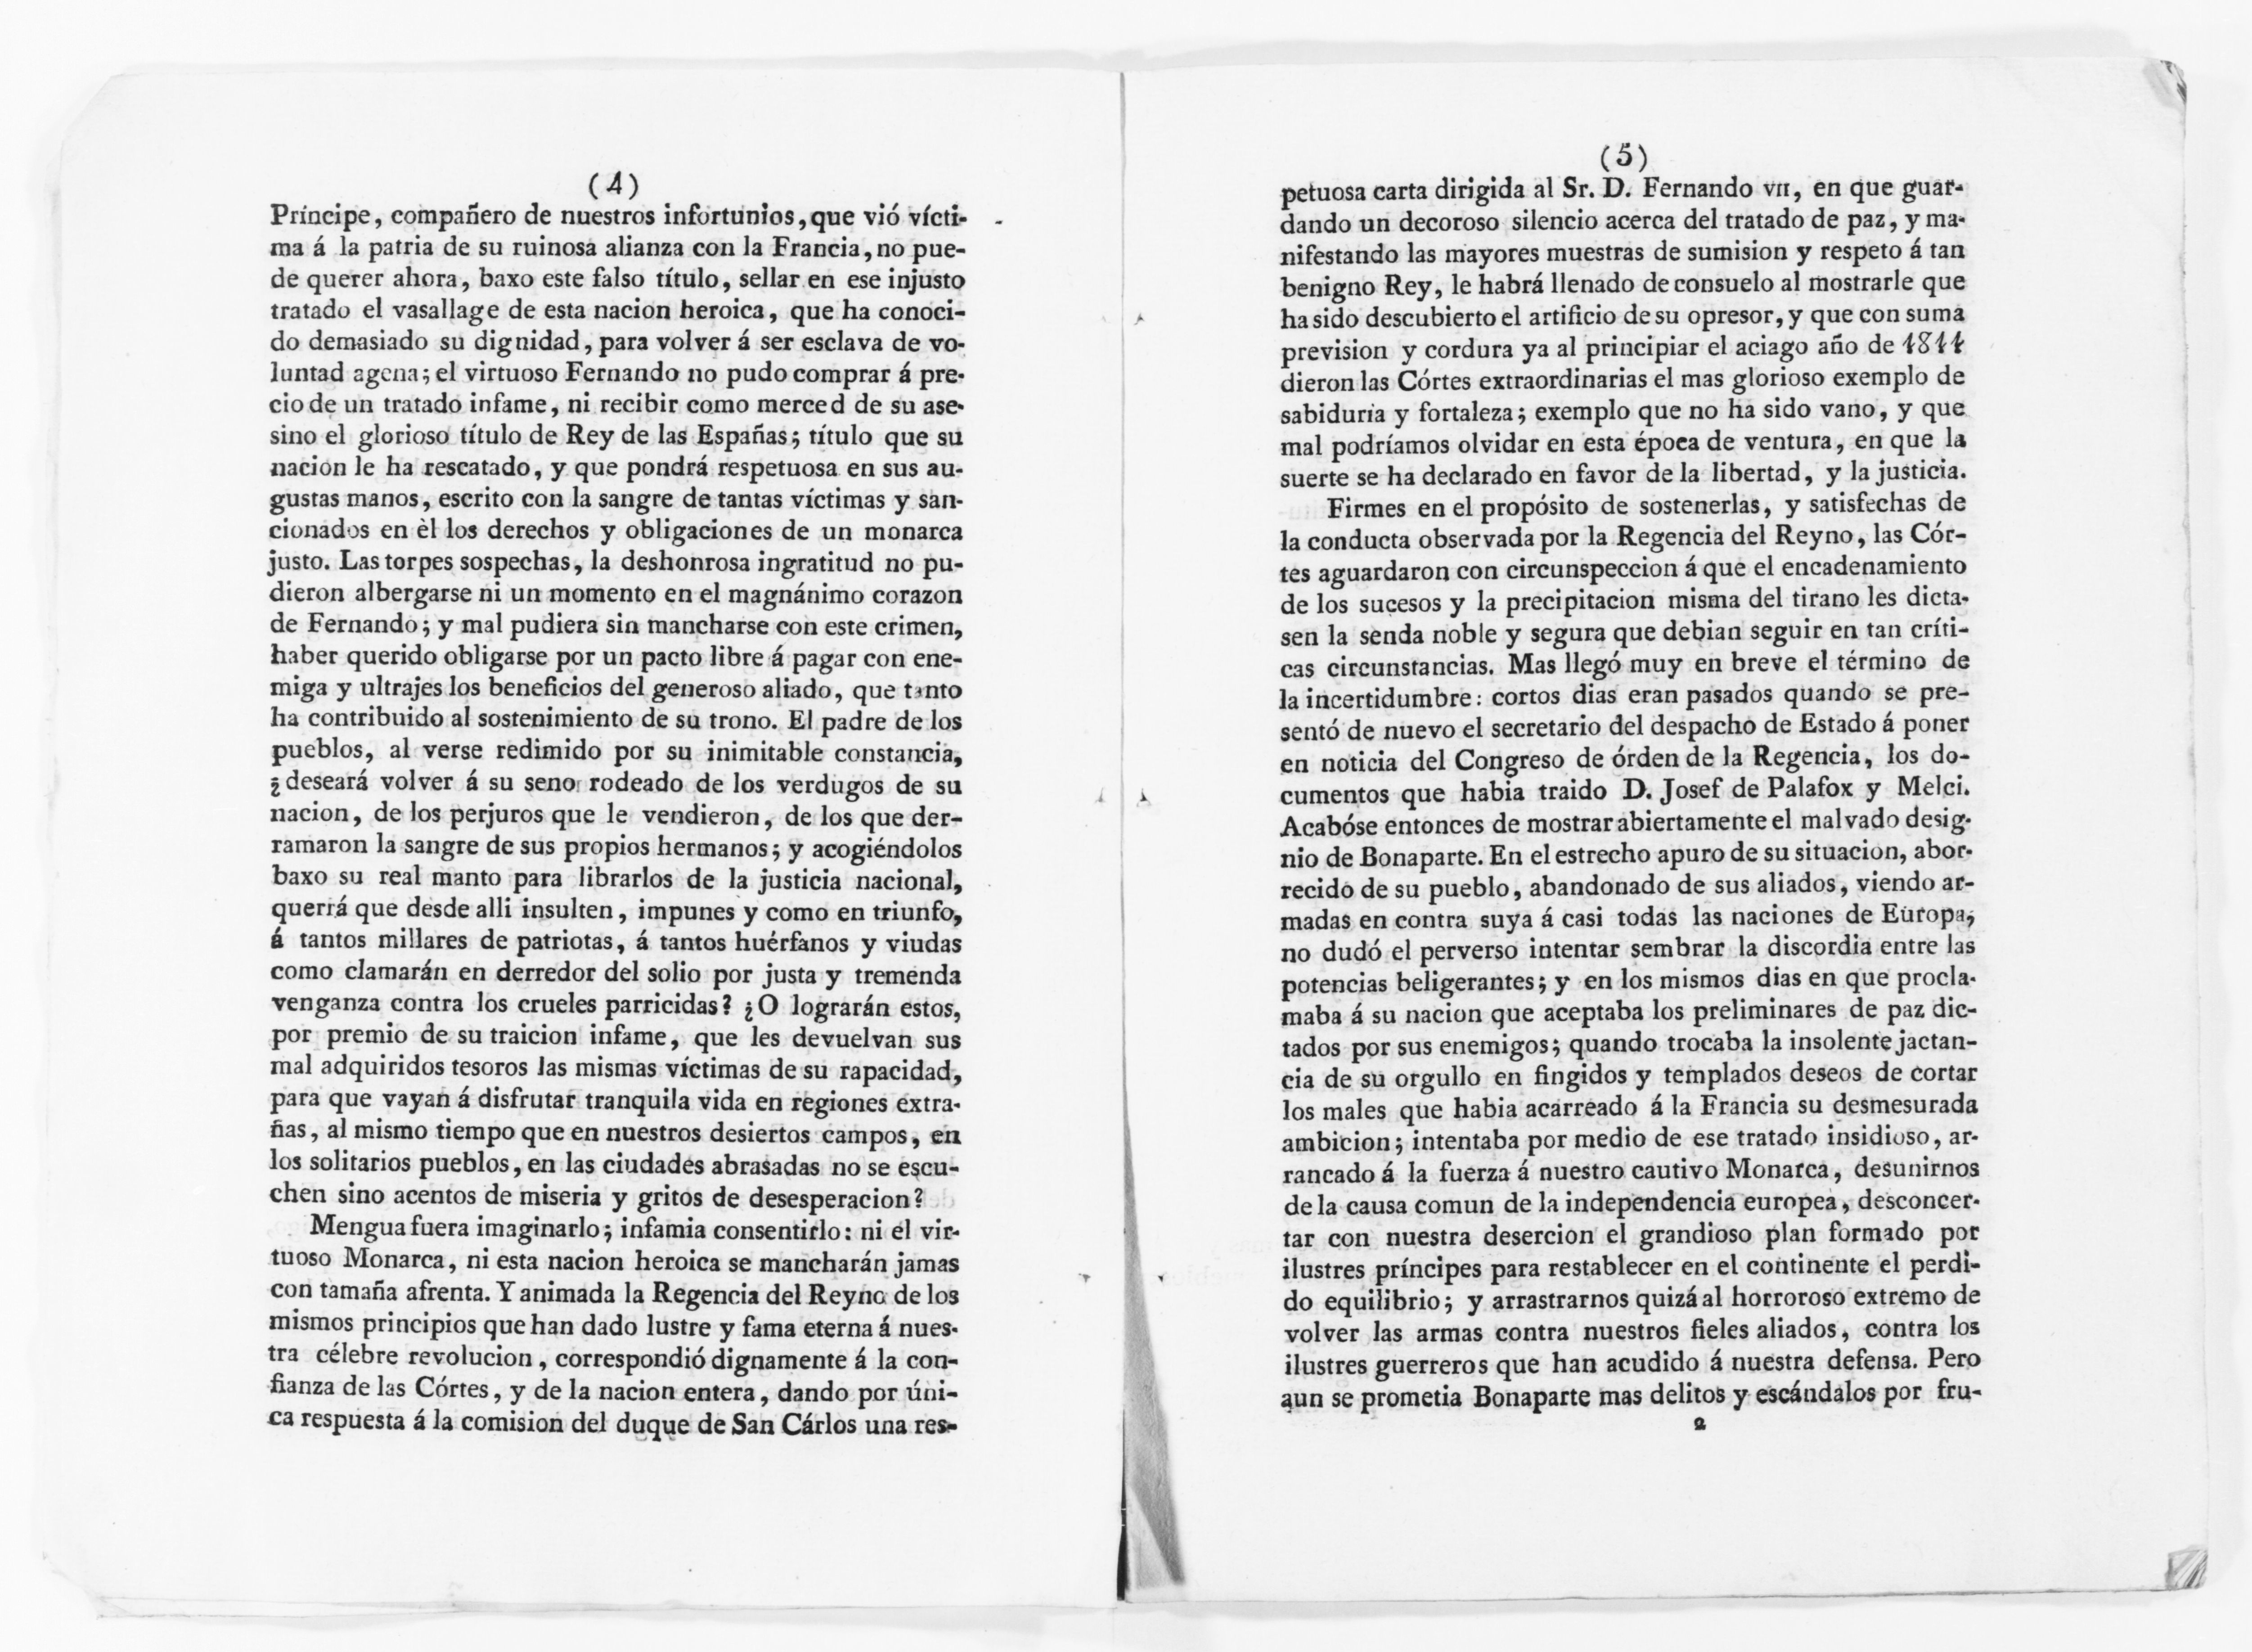 (4)
Príncipe, compañero de nuestros infortunios, que vió vícti-
ma á la patria de su ruinosa alianza con la Francia, no pue-
de querer ahora, baxo este falso título, sellar en ese injusto
tratado el vasallage de esta nacion heroica, que ha conoci-
do demasiado su dignidad, para volver á ser esclava de vo-
luntad agena; el virtuoso Fernando no pudo comprar á pre-
cio de un tratado infame, ni recibir como merced de su ase-
sino el glorioso título de Rey de las Españas; título que su
nacion le ha rescatado, y que pondrá respetuosa en sus au-
gustas manos, escrito con la sangre de tantas víctimas y san-
cionados en èl los derechos y obligaciones de un monarca
justo. Las torpes sospechas, la deshonrosa ingratitud no pu-
dieron albergarse ni un momento en el magnánimo corazon
de Fernando; y mal pudiera sin mancharse con este crimen,
haber querido obligarse por un pacto libre á pagar con ene-
miga y ultrajes los beneficios del generoso aliado, que tanto
ha contribuido al sostenimiento de su trono. El padre de los
pueblos, al verse redimido por su inimitable constancia,
¿deseará volver á su seno rodeado de los verdugos de su
nacion, de los perjuros que le vendieron, de los que der-
ramaron la sangre de sus propios hermanos; y acogiéndolos
baxo su real manto para librarlos de la justicia nacional,
querrá que desde alli insulten, impunes y como en triunfo,
á tantos millares de patriotas, á tantos huérfanos y viudas
como clamarán en derredor del solio por justa y tremenda
venganza contra los crueles parricidas? ¿O lograrán estos,
por premio de su traicion infame, que les devuelvan sus
mal adquiridos tesoros las mismas víctimas de su rapacidad,
para que vayan á disfrutar tranquila vida en regiones extra-
ñas, al mismo tiempo que en nuestros desiertos campos, en
los solitarios pueblos, en las ciudades abrasadas no se escu-
chen sino acentos de miseria y gritos de desesperacion?
Mengua fuera imaginarlo; infamia consentirlo: ni el vir-
tuoso Monarca, ni esta nacion heroica se mancharán jamas
con tamaña afrenta. Y animada la Regencia del Reyno de los
mismos principios que han dado lustre y fama eterna á nues-
tra célebre revolucion, correspondió dignamente á la con-
fianza de las Córtes, y de la nacion entera, dando por úni-
ca respuesta á la comision del duque de San Cárlos una res-
(5)
petuosa carta dirigida al Sr. D. Fernando VII, en que guar-
dando un decoroso silencio acerca del tratado de paz, y ma-
nifestando las mayores muestras de sumision y respeto á tan
benigno Rey, le habrá llenado de consuelo al mostrarle que
ha sido descubierto el artificio de su opresor, y que con suma
prevision y cordura ya al principiar el aciago año de 1811
dieron las Córtes extraordinarias el mas glorioso exemplo de
sabiduria y fortaleza; exemplo que no ha sido vano, y que
mal podríamos olvidar en esta época de ventura, en que la
suerte se ha declarado en favor de la libertad, y la justicia.
Firmes en el propósito de sostenerlas, y satisfechas de
la conducta observada por la Regencia del Reyno, las Cór-
tes aguardaron con circunspeccion á que el encadenamiento
de los sucesos y la precipitacion misma del tirano les dicta-
sen la senda noble y segura que debian seguir en tan críti-
cas circunstancias. Mas llegó muy en breve el término de
la incertidumbre: cortos dias eran pasados quando se pre-
sentó de nuevo el secretario del despacho de Estado á poner
en noticia del Congreso de órden de la Regencia, los do-
cumentos que habia traido D. Josef de Palafox y Melci.
Acabóse entonces de mostrar abiertamente el malvado desig-
nio de Bonaparte. En el estrecho apuro de su situacion, abor-
recido de su pueblo, abandonado de sus aliados, viendo ar-
madas en contra suya á casi todas las naciones de Europa,
no dudó el perverso intentar sembrar la discordia entre las
potencias beligerantes; y en los mismos dias en que procla-
maba á su nacion que aceptaba los preliminares de paz dic-
tados por sus enemigos; quando trocaba la insolente jactan-
cia de su orgullo en fingidos y templados deseos de cortar
los males que habia acarreado á la Francia su desmesurada
ambicion; intentaba por medio de ese tratado insidioso, ar-
rancado á la fuerza á nuestro cautivo Monarca, desunirnos
de la causa comun de la independencia europea, desconcer-
tar con nuestra desercion el grandioso plan formado por
ilustres príncipes para restablecer en el continente el perdi-
do equilibrio; y arrastrarnos quizá al horroroso extremo de
volver las armas contra nuestros fieles aliados, contra los
ilustres guerreros que han acudido á nuestra defensa. Pero
aun se prometia Bonaparte mas delitos y escándalos por fru-
2